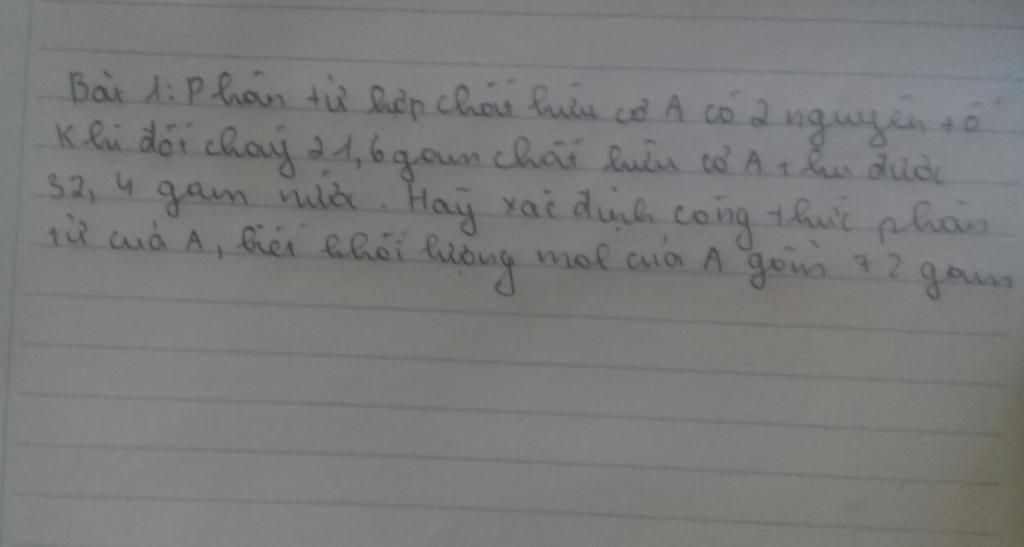 Bài 1: Phân tử hợp chất hữu cơ A có 2 nguyên tố
Khi đốt cháy 21,6 gam chất hữu cơ A thu được
32,4 gam nước. Hãy xác định công thức phân
tử của A, biết khối lượng mol của A gồm 72 gam